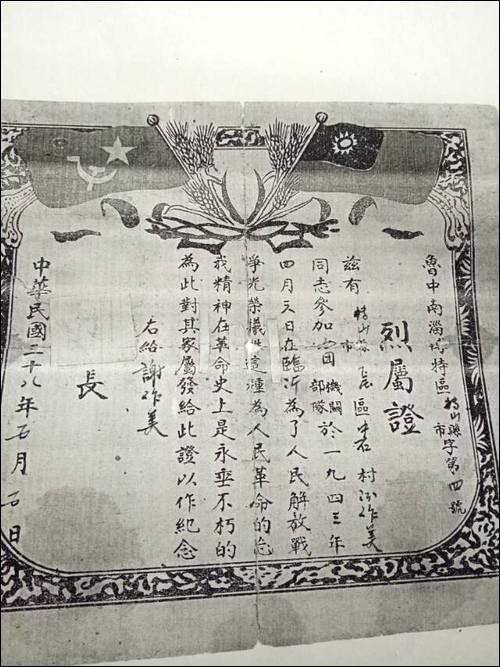 烈屬證
魯中南淄博特區 縣市 字第四號
兹有 縣市 區 村 作美
同志參加 機關部隊於一九四三年
四月 日在臨沂為了人民解放戰
爭光榮犧牲這種為人民革命的忘
我精神在革命史上是永垂不朽的
為此對其家屬發給此證以作紀念
右給謝作美
長
中華民國三十八年五月 日